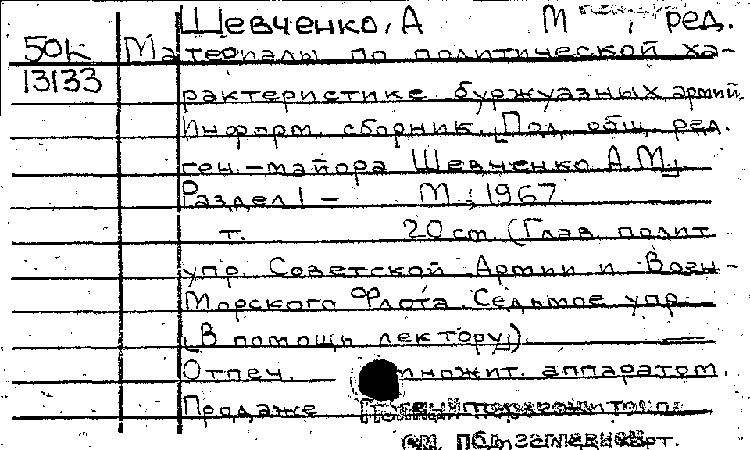 Шевченко, А М , ред.
50к Материалы по политической ха-
13133 рактеристике буржуазных армий.
Информ. сборник. [Под общ. ред.
ген.-майора Шевченко А.М.]
Раздел I – М., 1967
т. 20 см (Глав. полит.
упр. Советской Армии и Воен.-
Морского Флота. Седьмое упр.
[В помощь лектору])
Отпеч. множит. аппаратом.
Продаже
см. след. карт.